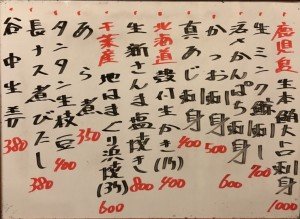 鹿児島 生本鮪大トロ刺身 1000
生ミンク鯨刺身 700
活かんぱち刺身 600
かつお刺身 500
真あじ刺身 400
北海道 生かき(1ヶ) 400
生新さんま塩焼き 800
千葉産 地はまぐり浜焼(3ヶ) 600
あら煮 350
タンタン生枝豆 400
長ナス煮びたし 380
谷中生姜 380